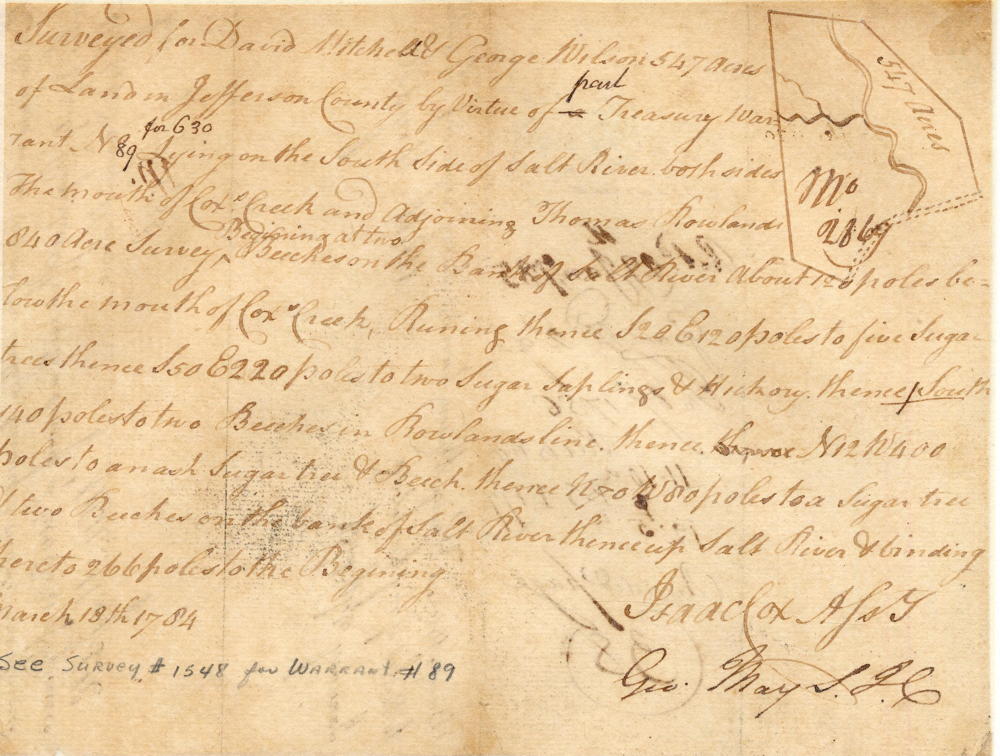 Surveyed for David Mitchell & George Wilson 547 Acres
of Land in Jefferson County by Virtue of part Treasury War-
rant N 89 for 630 Lying on the South Side of Salt River both sides
The mouth of Coxs Creek and Adjoining Thomas Rowlands
840 Acre Survey Begining at two Beeches on the Bank of Salt River About 120 poles be-
low the mouth of Coxs Creek, Runing thence S20E 120 poles to five Sugar
trees thence S50E 220 poles to two Sugar Saplings & Hickory. thence South
140 poles to two Beeches in Rowlands line. thence N12W 400
poles to an ash Sugar tree & Beech. thence N70W 80 poles to a Sugar tree
& two Beeches on the bank of Salt River thence up Salt River & binding
thereto 266 poles to the Begining
March 18th 1784
Isaac Cox Asst
Geo. May S. J. C
See Survey # 1548 for Warrant # 89
547 Acres
No
2869